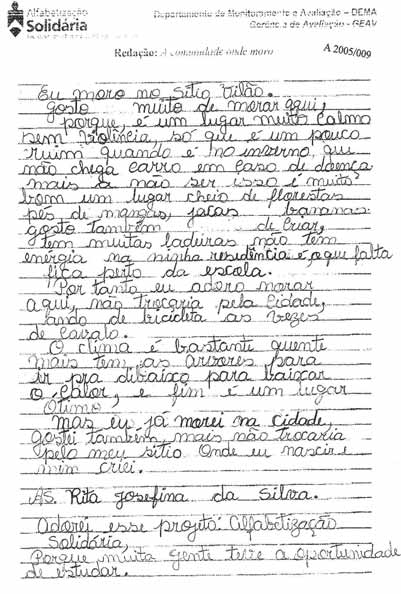 Alfabetização
Solidária
Departamento de Monitoramento e Avaliação – DEMA
Gerência de Avaliação - GEAV
Redação: A comunidade onde moro
A 2005/009
Eu moro no Sitio Vilão.
gosto muito de morar aqui,
porque, é um lugar muito calmo
sem violência, só que é um pouco
ruim quando é no inverno, que
não chega carro em caso de doença
mais a não ser isso é muito
bom um lugar cheio de florestas
pés de mangas, jacas bananas.
gosto também de criar,
tem muitas laduras não tem
energia na minha residência é o que falta
fica perto da escola.
Por tanto eu adoro morar
aqui, não trocaria pela Cidade,
ando de bicicleta as vezes
de cavalo.
O clima é bastante quente
mais tem as arvores para
ir pra dibaixo para baixar
o calor, e fim é um lugar
Otimo
mas eu já morei na cidade,
gostei também, mais não trocaria
pelo meu sitio Onde eu nascir e
mim criei.
AS. Rita Josefina da Silva.
Adorei esse projeto: Alfabetização
Solidária,
Porque muita gente teve a oportunidade
de estudar.